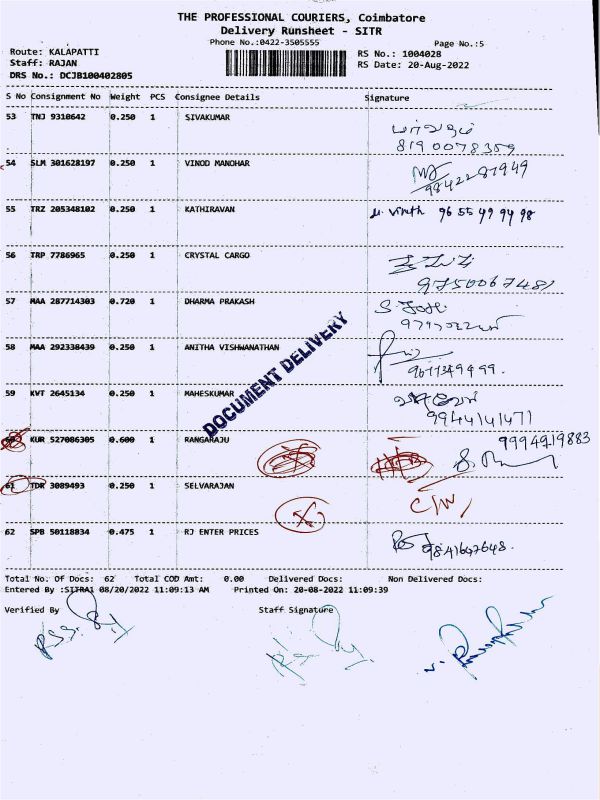 THE PROFESSIONAL COURIERS, Coimbatore
Delivery Runsheet - SITR
Phone No.:0422-3505555 Page No.:5
Route: KALAPATTI RS No.: 1004028
Staff: RAJAN RS Date: 20-Aug-2022
DRS No.: DCJB100402805
S No Consignment No Weight PCS Consignee Details Signature
53 TNJ 9310642 0.250 1 SIVAKUMAR
8190078359
54 SLM 301628197 0.250 1 VINOD MANOHAR
9842281949
55 TRZ 205348102 0.250 1 KATHIRAVAN 96 55 49 94 98
56 TRP 7786965 0.250 1 CRYSTAL CARGO
9750067481
57 MAA 287714303 0.720 1 DHARMA PRAKASH
58 MAA 292338439 0.250 1 ANITHA VISHWANATHAN
DOCUMENT DELIVERY
59 KVT 2645134 0.250 1 MAHESKUMAR
9944141471
60 KUR 527086305 0.600 1 RANGARAJU 9994919883
61 TDR 3089493 0.250 1 SELVARAJAN
C/W
62 SPB 50118034 0.475 1 RJ ENTER PRICES
9841647648.
Total No. Of Docs: 62 Total COD Amt: 0.00 Delivered Docs: Non Delivered Docs:
Entered By :SITRA1 08/20/2022 11:09:13 AM Printed On: 20-08-2022 11:09:39
Verified By Staff Signature